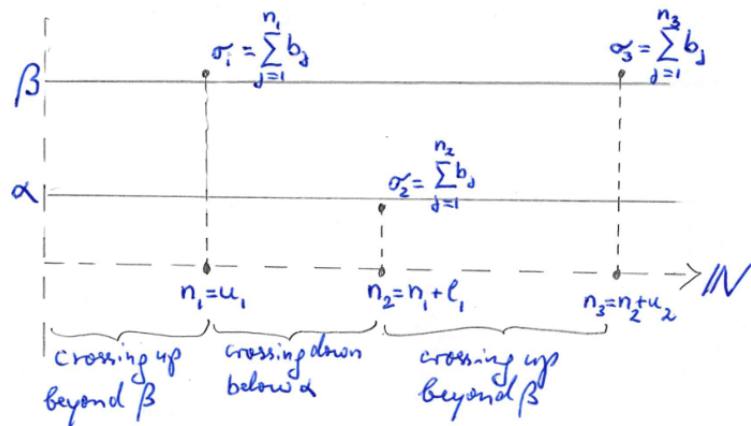 σ₁ = ∑_{j=1}^{n₁} b_j
σ₃ = ∑_{j=1}^{n₃} b_j
β
σ₂ = ∑_{j=1}^{n₂} b_j
α
n₁ = u₁
n₂ = n₁ + ℓ₁
n₃ = n₂ + u₂
ℕ
crossing up
beyond β
crossing down
below α
crossing up
beyond β